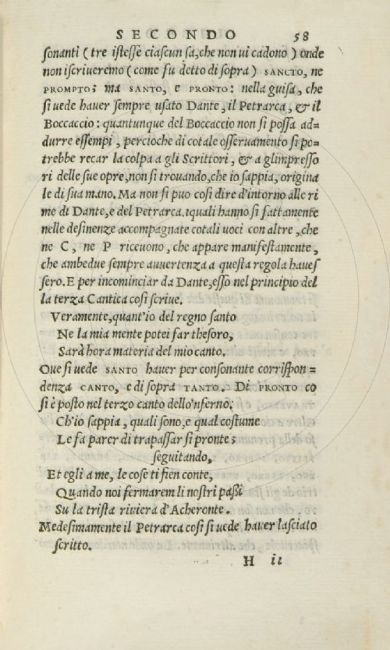 SECONDO 58
sonanti (tre istesse ciascun sa, che non ui cadono) onde
non iscriueremo (come fu detto di sopra) SANCTO, ne
PROMPTO; ma SANTO, e PRONTO: nella guisa, che
si uede haver sempre usato Dante, il Petrarca, & il
Boccaccio: quantunque del Boccaccio non si possa ad-
durre essempi, percioche di cotale osseruamento si po-
trebbe recar la colpa a gli Scrittori, & a glimpresso
ri delle sue opre, non si trouando, che io sappia, origina
le di sua mano. Ma non si puo così dire d'intorno alle ri
me di Dante, e del Petrarca. iquali hanno sì fattamente
nelle desinenze accompagnate cotali uoci con altre, che
ne C, ne P riceuono, che appare manifestamente,
che ambedue sempre auuertenza a questa regola haues
sero. E per incominciar da Dante, esso nel principio del
la terza Cantica così scriue.
Veramente, quant'io del regno santo
Ne la mia mente potei far thesoro,
Sarà hora materia del mio canto.
Oue si uede SANTO haver per consonante corrispon-
denza CANTO, e di sopra TANTO. Di PRONTO co
sì è posto nel terzo canto dello'nferno;
Ch'io sappia, quali sono, e qual costume
Le fa parer di trapassar sì pronte;
seguitando,
Et egli a me, le cose ti fien conte,
Quando noi fermarem li nostri passi
Su la trista riviera d'Acheronte.
Medesimamente il Petrarca così si uede haver lasciato
scritto.
H ii